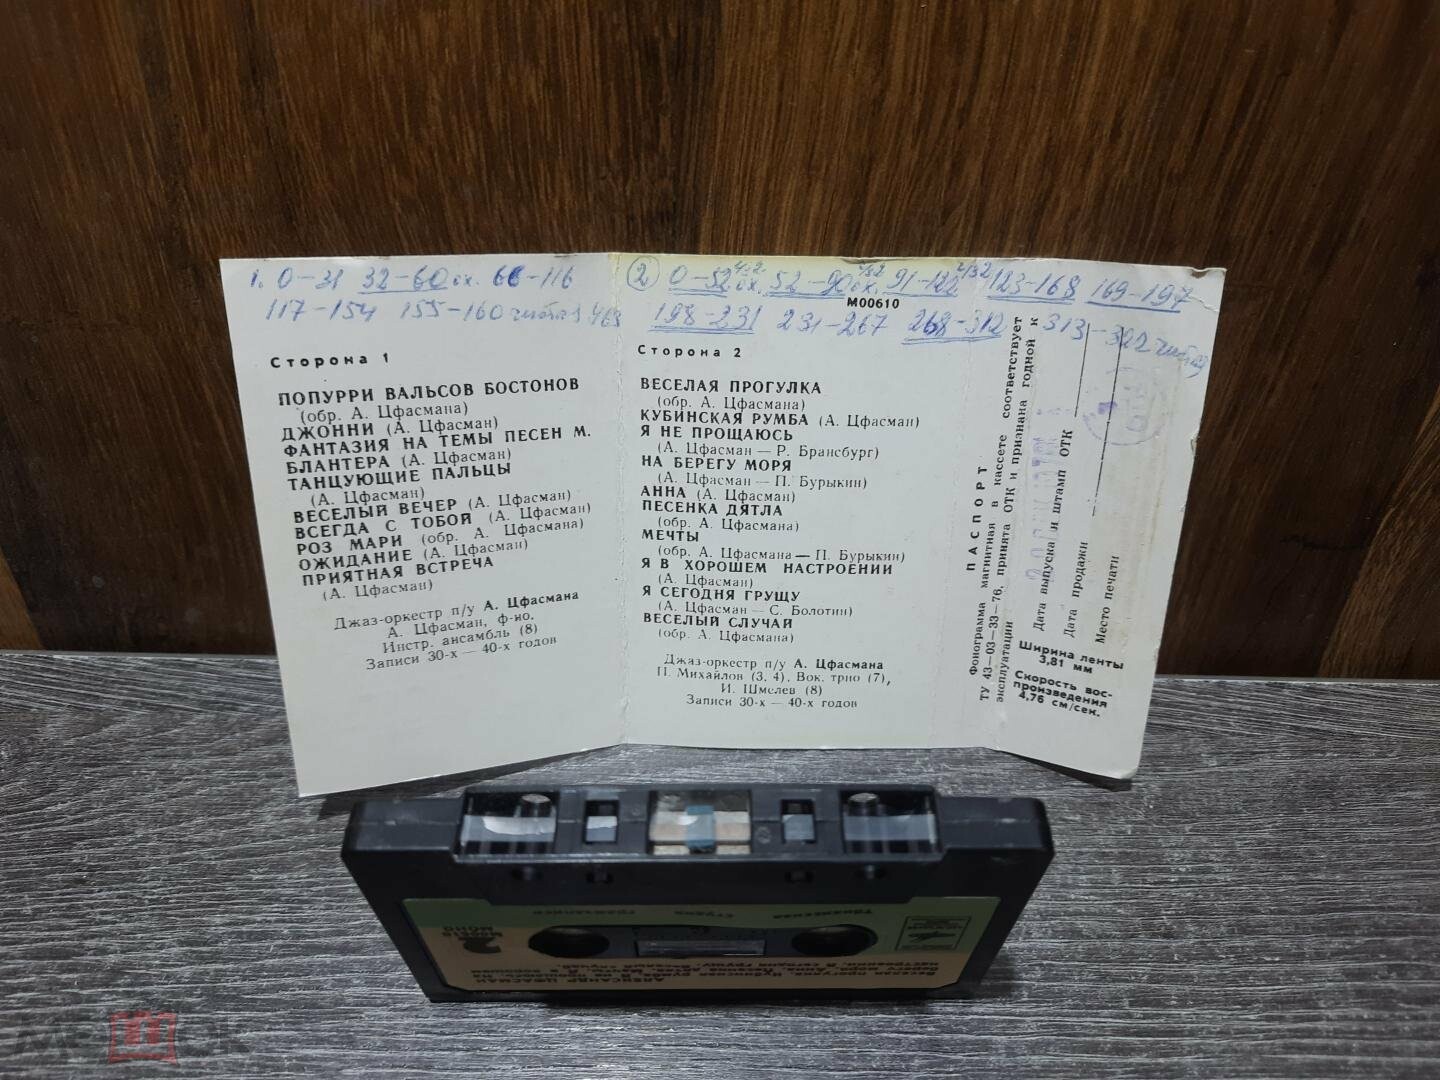 1. 0-31 32-60 116
117-154 155-160
Сторона 1
ПОПУРРИ ВАЛЬСОВ БОСТОНОВ
(обр. А. Цфасмана)
ДЖОННИ (А. Цфасман)
ФАНТАЗИЯ НА ТЕМЫ ПЕСЕН М.
БЛАНТЕРА (А. Цфасман)
ТАНЦУЮЩИЕ ПАЛЬЦЫ
(А. Цфасман)
ВЕСЕЛЫЙ ВЕЧЕР (А. Цфасман)
ВСЕГДА С ТОБОЙ (А. Цфасман)
РОЗ МАРИ (обр. А. Цфасмана)
ОЖИДАНИЕ (А. Цфасман)
ПРИЯТНАЯ ВСТРЕЧА
(А. Цфасман)
Джаз-оркестр п/у А. Цфасмана
А. Цфасман, ф-но.
Инстр. ансамбль (8)
Записи 30-х — 40-х годов
2 0-52 52-90 91-122 123-168 169-197
М00610
198-231 231-267 268-312 313-322
Сторона 2
ВЕСЕЛАЯ ПРОГУЛКА
(обр. А. Цфасмана)
КУБИНСКАЯ РУМБА (А. Цфасман)
Я НЕ ПРОЩАЮСЬ
(А. Цфасман — Р. Брансбург)
НА БЕРЕГУ МОРЯ
(А. Цфасман — П. Бурыкин)
АННА (А. Цфасман)
ПЕСЕНКА ДЯТЛА
(обр. А. Цфасмана)
МЕЧТЫ
(обр. А. Цфасмана — П. Бурыкин)
Я В ХОРОШЕМ НАСТРОЕНИИ
(А. Цфасман)
Я СЕГОДНЯ ГРУЩУ
(А. Цфасман — С. Болотин)
ВЕСЕЛЫЙ СЛУЧАЙ
(обр. А. Цфасмана)
Джаз-оркестр п/у А. Цфасмана
П. Михайлов (3, 4). Вок. трио (7),
И. Шмелев (8)
Записи 30-х — 40-х годов
ПАСПОРТ
Фонограмма магнитная в кассете соответствует
ТУ 43—03—33—76, принята ОТК и признана годной к
эксплуатации
Дата выпуска и штамп ОТК
Дата продажи
Место печати
Ширина ленты
3,81 мм
Скорость вос-
произведения
4,76 см/сек.
АЛЕКСАНДР ЦФАСМАН
Веселая прогулка, Я не прощаюсь, На
берегу моря, Анна, Песенка дятла, Мечты, Я в хорошем
настроении, Я сегодня грущу,
2
МОНО
М00610
Тбилисская студия грамзаписи
МЕШОК